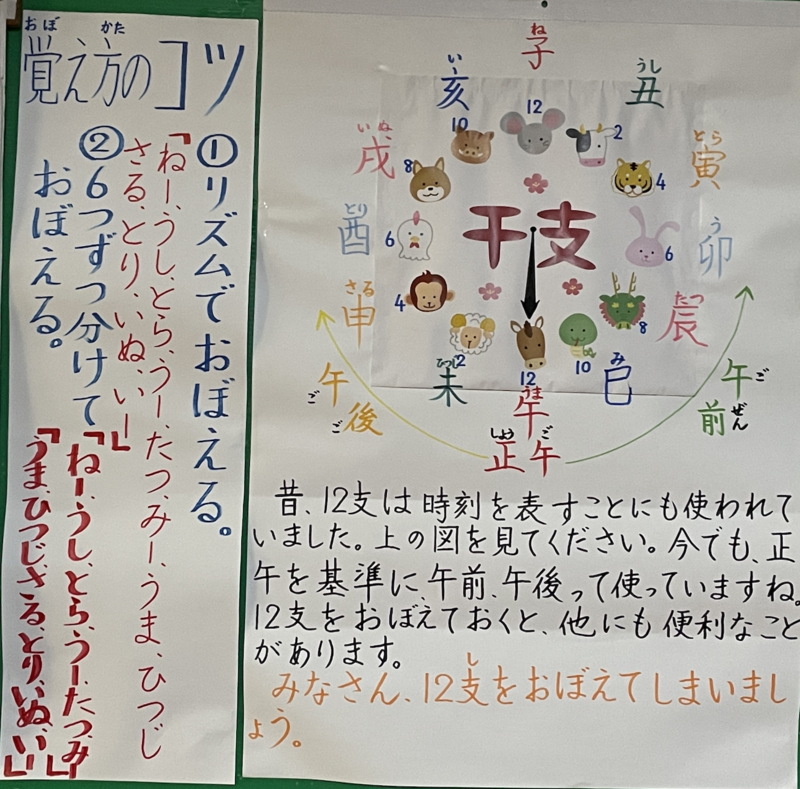 覚え方のコツ
おぼ
かた
①リズムでおぼえる。
「ねー、うし、とら、うー、たつ、みー、うま、ひつじ
さる、とり、いぬ、いー」
②6つずつ分けて
おぼえる。
「ねー、うし、とら、うー、たつ、み」
「うま、ひつじ、さる、とり、いぬ、い」
ね
子
うし
丑
とら
寅
う
卯
たつ
辰
み
巳
うま
午
ひつじ
未
さる
申
とり
酉
いぬ
戌
い
亥
12
2
4
6
8
10
12
2
4
6
8
10
干支
午前
ごぜん
正午
しょうご
午後
ごご
昔、12支は時刻を表すことにも使われて
いました。上の図を見てください。今でも、正
午を基準に、午前、午後って使っていますね。
12支をおぼえておくと、他にも便利なこと
があります。
みなさん、12支をおぼえてしまいまし
し
ょう。